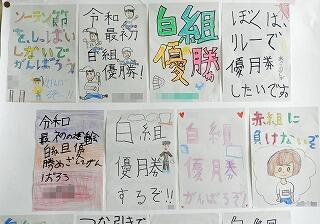 ソーラン節
をしっぱい
しないで
がんばろう
令和
最初
白組
優勝!
白組
優勝
ぼくは、
リレーで
優月券
したいです
令和
最初の運動会
白組優
勝めざしてがん
ばろう
白組
優勝
するぞ!!
白組
優勝
がんばるぞ!
赤組に
負けないぞ
つな引きで